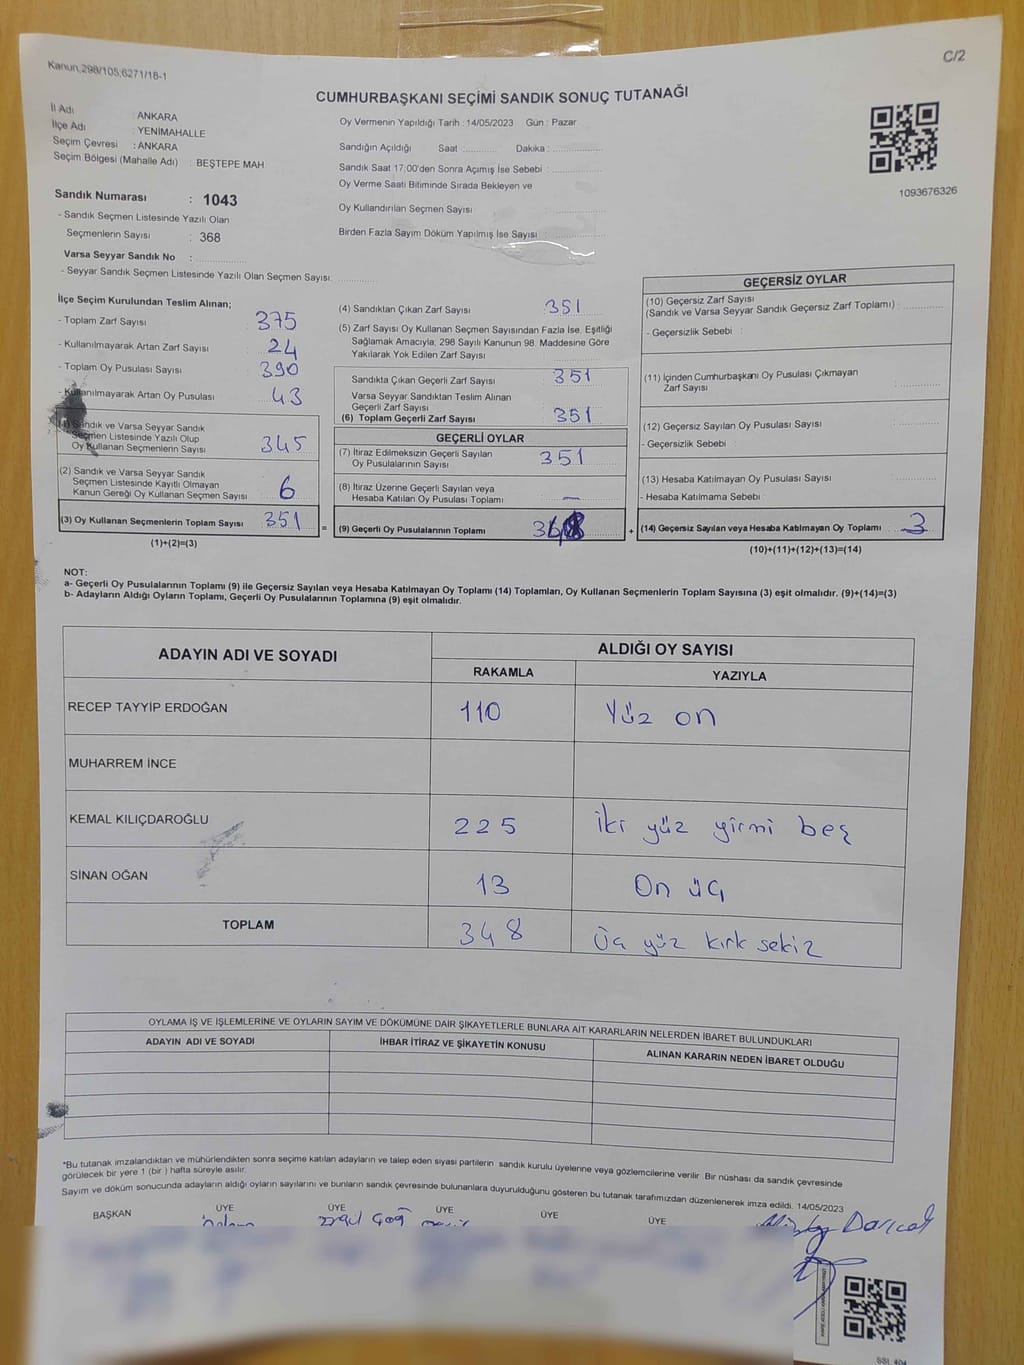 Kanun,298/105;6271/18-1
C/2
CUMHURBAŞKANI SEÇİMİ SANDIK SONUÇ TUTANAĞI
İl Adı : ANKARA
İlçe Adı : YENİMAHALLE
Seçim Çevresi : ANKARA
Seçim Bölgesi (Mahalle Adı) : BEŞTEPE MAH
Sandık Numarası : 1043
- Sandık Seçmen Listesinde Yazılı Olan
Seçmenlerin Sayısı : 368
Varsa Seyyar Sandık No :
- Seyyar Sandık Seçmen Listesinde Yazılı Olan Seçmen Sayısı:
Oy Vermenin Yapıldığı Tarih : 14/05/2023 Gün : Pazar
Sandığın Açıldığı Saat : Dakika :
Sandık Saat 17:00'den Sonra Açımış İse Sebebi :
Oy Verme Saati Bitiminde Sırada Bekleyen ve
Oy Kullandırılan Seçmen Sayısı
Birden Fazla Sayım Döküm Yapılmış İse Sayısı
1093676326
İlçe Seçim Kurulundan Teslim Alınan;
- Toplam Zarf Sayısı 375
- Kullanılmayarak Artan Zarf Sayısı 24
- Toplam Oy Pusulası Sayısı 390
- Kullanılmayarak Artan Oy Pusulası 43
(1) Sandık ve Varsa Seyyar Sandık
Seçmen Listesinde Yazılı Olup
Oy Kullanan Seçmenlerin Sayısı 345
(2) Sandık ve Varsa Seyyar Sandık
Seçmen Listesinde Kayıtlı Olmayan
Kanun Gereği Oy Kullanan Seçmen Sayısı 6
(3) Oy Kullanan Seçmenlerin Toplam Sayısı 351 =
(1)+(2)=(3)
(4) Sandıktan Çıkan Zarf Sayısı 351
(5) Zarf Sayısı Oy Kullanan Seçmen Sayısından Fazla İse, Eşitliği
Sağlamak Amacıyla, 298 Sayılı Kanunun 98. Maddesine Göre
Yakılarak Yok Edilen Zarf Sayısı
Sandıkta Çıkan Geçerli Zarf Sayısı 351
Varsa Seyyar Sandıktan Teslim Alınan
Geçerli Zarf Sayısı
(6) Toplam Geçerli Zarf Sayısı 351
GEÇERLİ OYLAR
(7) İtiraz Edilmeksizin Geçerli Sayılan
Oy Pusulalarının Sayısı 351
(8) İtiraz Üzerine Geçerli Sayılan veya
Hesaba Katılan Oy Pusulası Toplamı —
(9) Geçerli Oy Pusulalarının Toplamı 348 +
GEÇERSİZ OYLAR
(10) Geçersiz Zarf Sayısı
(Sandık ve Varsa Seyyar Sandık Geçersiz Zarf Toplamı) :
- Geçersizlik Sebebi :
(11) İçinden Cumhurbaşkanı Oy Pusulası Çıkmayan
Zarf Sayısı :
(12) Geçersiz Sayılan Oy Pusulası Sayısı :
- Geçersizlik Sebebi :
(13) Hesaba Katılmayan Oy Pusulası Sayısı
- Hesaba Katılmama Sebebi
(14) Geçersiz Sayılan veya Hesaba Katılmayan Oy Toplamı 3
(10)+(11)+(12)+(13)=(14)
NOT:
a- Geçerli Oy Pusulalarının Toplamı (9) ile Geçersiz Sayılan veya Hesaba Katılmayan Oy Toplamı (14) Toplamları, Oy Kullanan Seçmenlerin Toplam Sayısına (3) eşit olmalıdır. (9)+(14)=(3)
b- Adayların Aldığı Oyların Toplamı, Geçerli Oy Pusulalarının Toplamına (9) eşit olmalıdır.
ADAYIN ADI VE SOYADI ALDIĞI OY SAYISI
RAKAMLA YAZIYLA
RECEP TAYYİP ERDOĞAN 110 Yüz on
MUHARREM İNCE
KEMAL KILIÇDAROĞLU 225 iki yüz yirmi beş
SİNAN OĞAN 13 On üç
TOPLAM 348 Üç yüz kırk sekiz
OYLAMA İŞ VE İŞLEMLERİNE VE OYLARIN SAYIM VE DÖKÜMÜNE DAİR ŞİKAYETLERLE BUNLARA AİT KARARLARIN NELERDEN İBARET BULUNDUKLARI
ADAYIN ADI VE SOYADI İHBAR İTİRAZ VE ŞİKAYETİN KONUSU ALINAN KARARIN NEDEN İBARET OLDUĞU
*Bu tutanak imzalandıktan ve mühürlendikten sonra seçime katılan adayların ve talep eden siyasi partilerin sandık kurulu üyelerine veya gözlemcilerine verilir. Bir nüshası da sandık çevresinde
görülecek bir yere 1 (bir ) hafta süreyle asılır.
Sayım ve döküm sonucunda adayların aldığı oyların sayılarını ve bunların sandık çevresinde bulunanlara duyurulduğunu gösteren bu tutanak tarafımızdan düzenlenerek imza edildi. 14/05/2023
BAŞKAN ÜYE ÜYE ÜYE ÜYE ÜYE